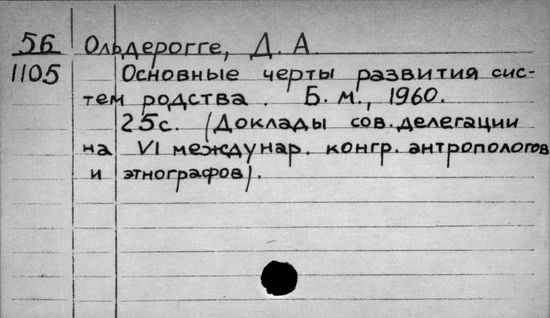 56 Ольдерогге, Д. А.
1105 Основные черты развития сис-
тем родства. Б. м., 1960.
25с. (Доклады сов. делегации
на VI междунар. конгр. антропологов
и этнографов).